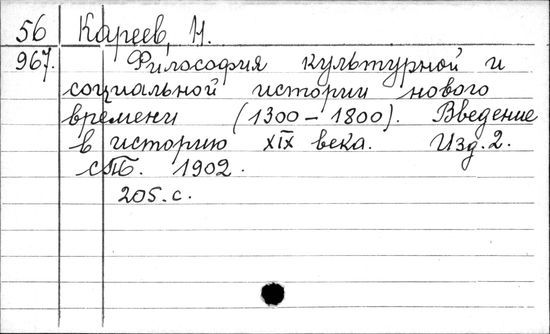 56 Кареев, Н.
967. Философия культурной и
социальной истории нового
времени (1300-1800). Введение
в историю XIX века. Изд. 2.
СПБ. 1902.
205. с.